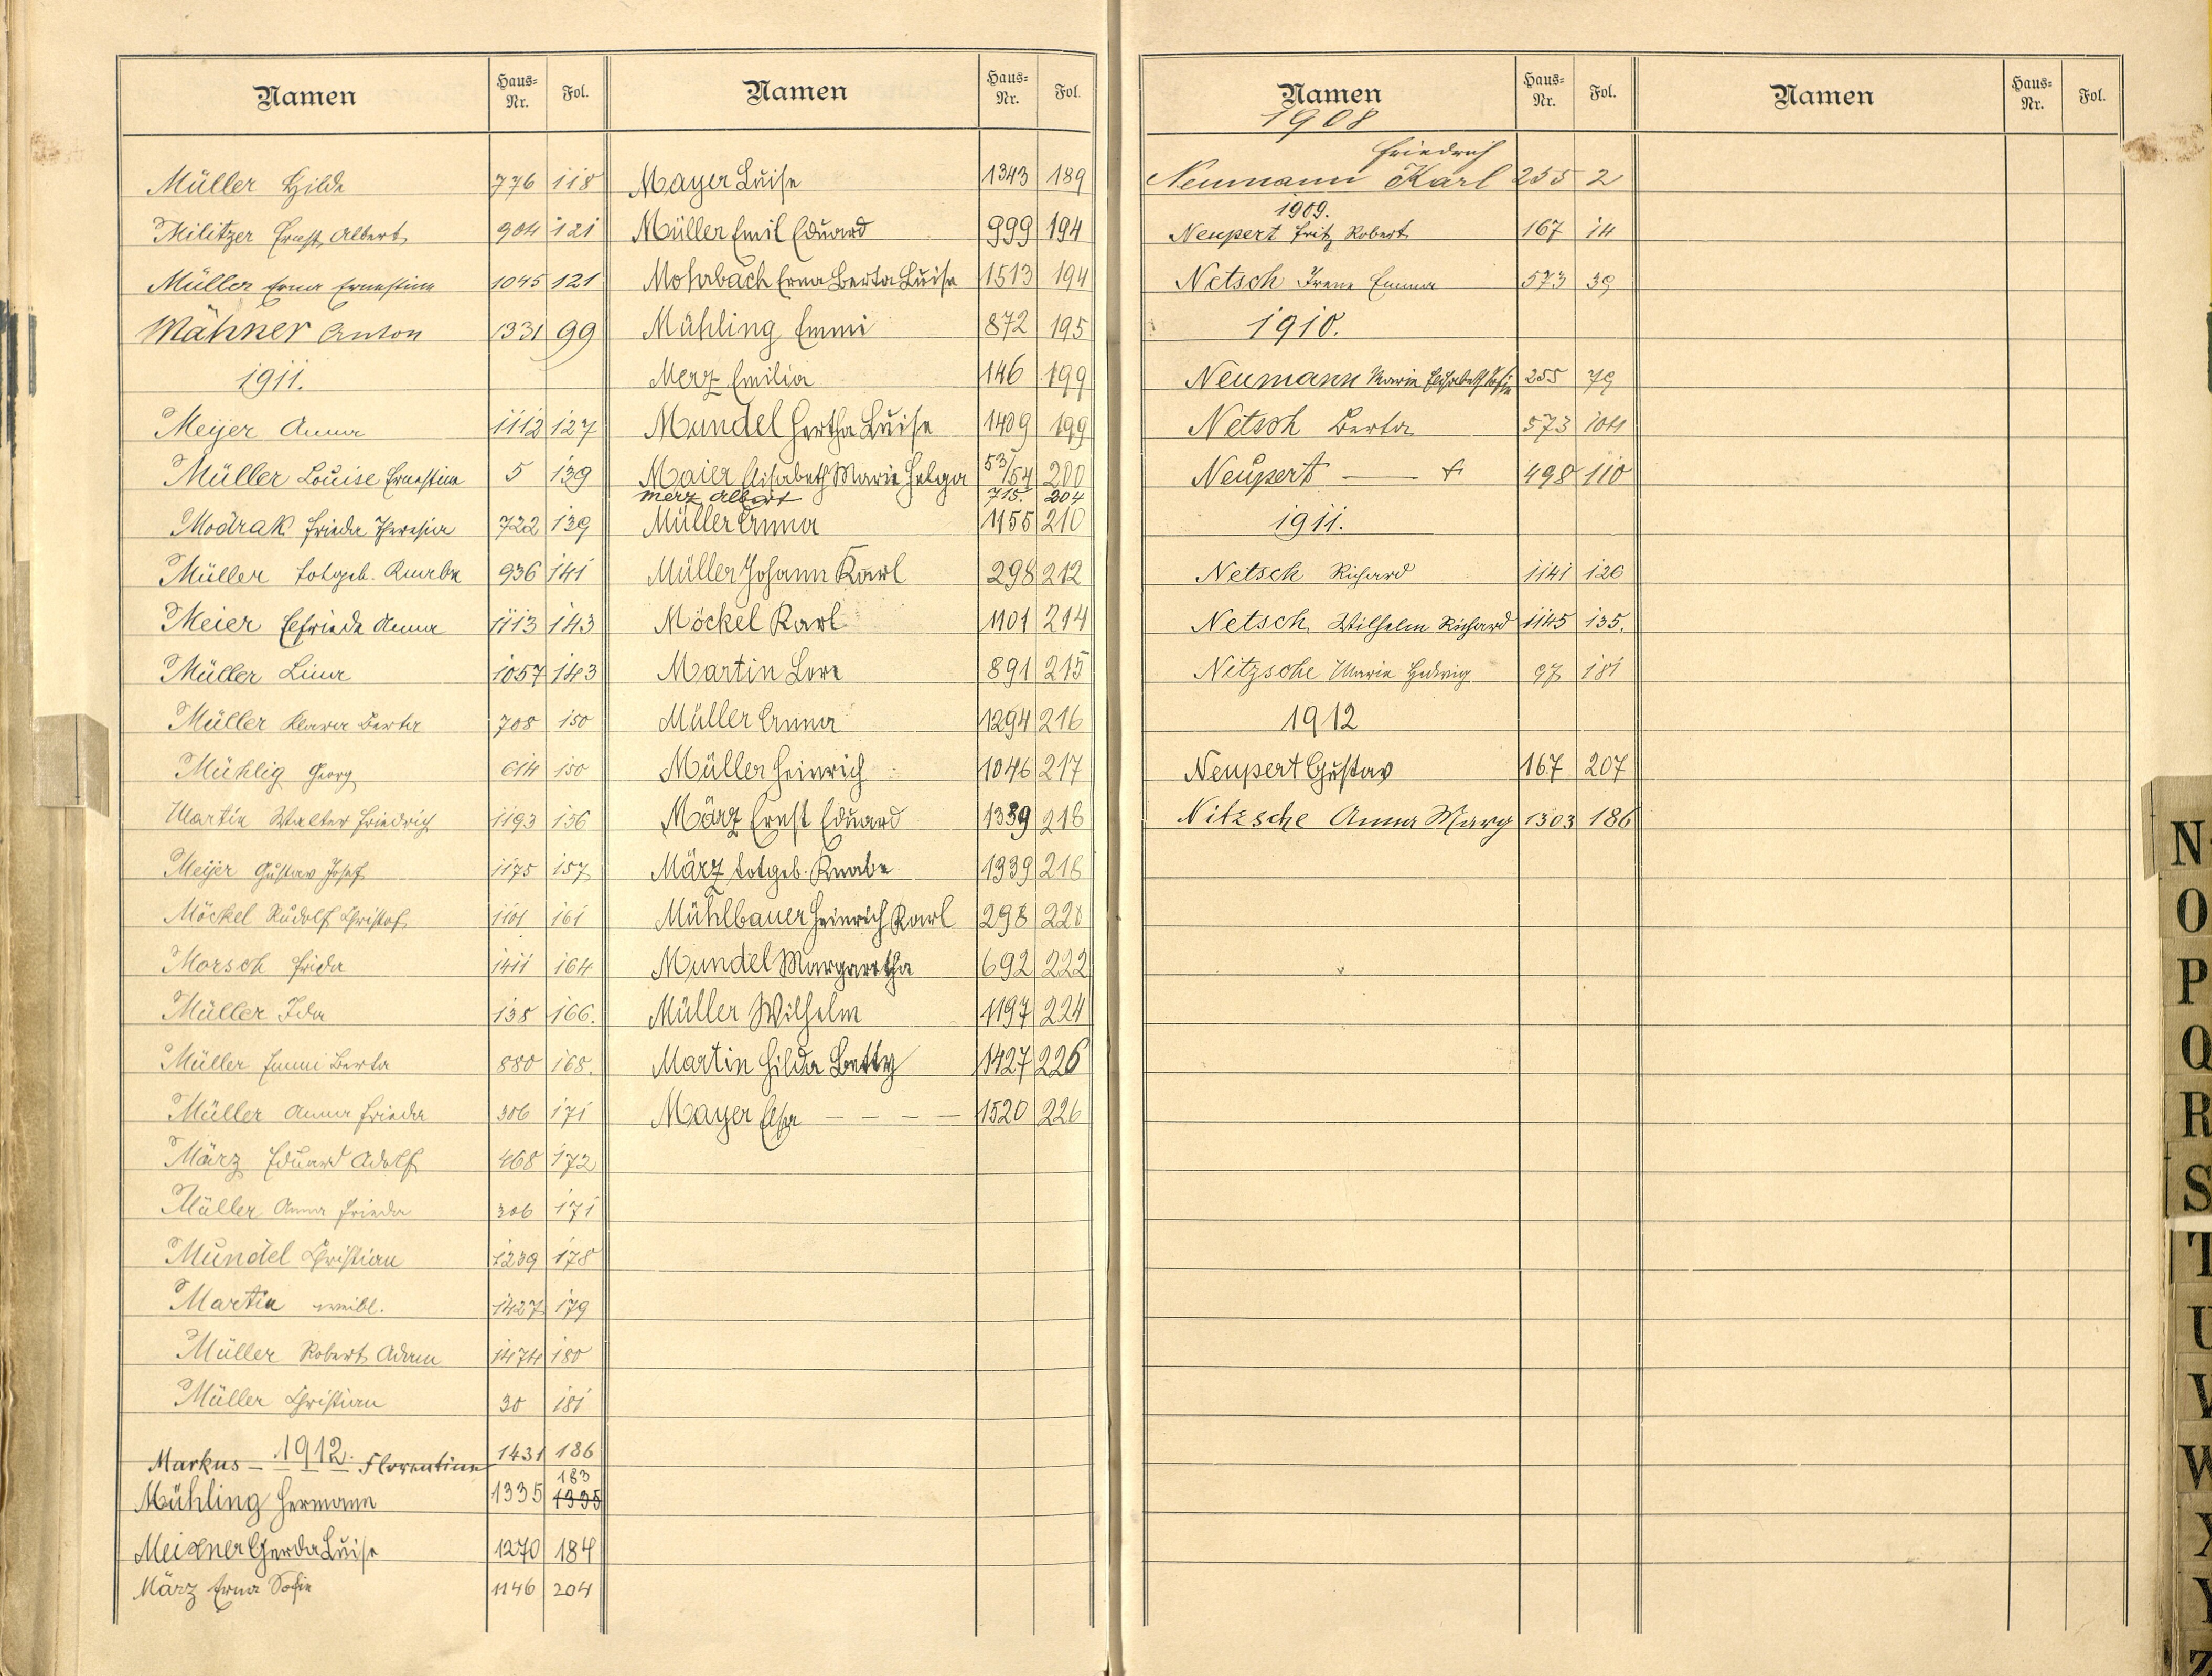 Namen Haus-Nr. Fol.
Müller Hilda 776 118
Militzer Ernst Albert 904 121
Müller Erna Ernestine 1045 121
Mähner Anton 1331 99
1911.
Meyer Anna 1112 127
Müller Louise Ernestine 5 139
Modrak Frieda Theresia 722 139
Müller totgeb. Knabe 936 141
Meier Elfriede Anna 1113 143
Müller Lina 1057 143
Müller Klara Berta 708 150
Mühlig Georg 614 150
Martin Walter Friedrich 1193 156
Meyer Gustav Josef 1175 157
Möckel Rudolf Christof 1101 161
Morsch Frida 1411 164
Müller Ida 138 166.
Müller Emmi Berta 880 168.
Müller Anna Frieda 306 171
März Eduard Adolf 468 172
Müller Anna Frieda 306 171
Mundel Christian 1239 178
Martin weibl. 1427 179
Müller Robert Adam 1474 180
Müller Christian 30 181
1912.
Markus Florentine 1431 186
Mühling Hermann 1335 183 1335
Meixner Gerda Luise 1270 184
März Erna Sofie 1146 204
Namen Haus-Nr. Fol.
Mayer Luise 1343 189
Müller Emil Eduard 999 194
Mohrbach Erna Berta Luise 1513 194
Mühling Emmi 872 195
Merz Emilia 146 199
Mundel Hertha Luise 1409 199
Maier Elisabeth Marie Helga 53/54 200
Merz Albert 715. 204
Müller Anna 1155 210
Müller Johann Karl 298 212
Möckel Karl 1101 214
Martin Lore 891 215
Müller Anna 1294 216
Müller Heinrich 1046 217
März Ernst Eduard 1339 218
März totgeb. Knabe 1339 218
Mühlbauer Heinrich Karl 298 220
Mundel Margaretha 692 222
Müller Wilhelm 1197 224
Martin Hilda Betty 1427 226
Mayer Elsa — — — — 1520 226
Namen Haus-Nr. Fol.
1908
Friedrich
Neumann Karl 255 2
1909.
Neupert Fritz Robert 167 14
Netsch Irene Emma 573 39
1910.
Neumann Marie Elisabeth Sofie 255 79
Netsch Berta 573 104
Neupert — + 498 110
1911.
Netsch Richard 1141 126
Netsch Wilhelm Richard 1145 135.
Nitzsche Marie Hedwig 97 181
1912
Neupert Gustav 167 207
Nitzsche Anna Marg 1303 186
Namen Haus-Nr. Fol.
N
O
P
Q
R
S
T
U
V
W
X
Y
Z